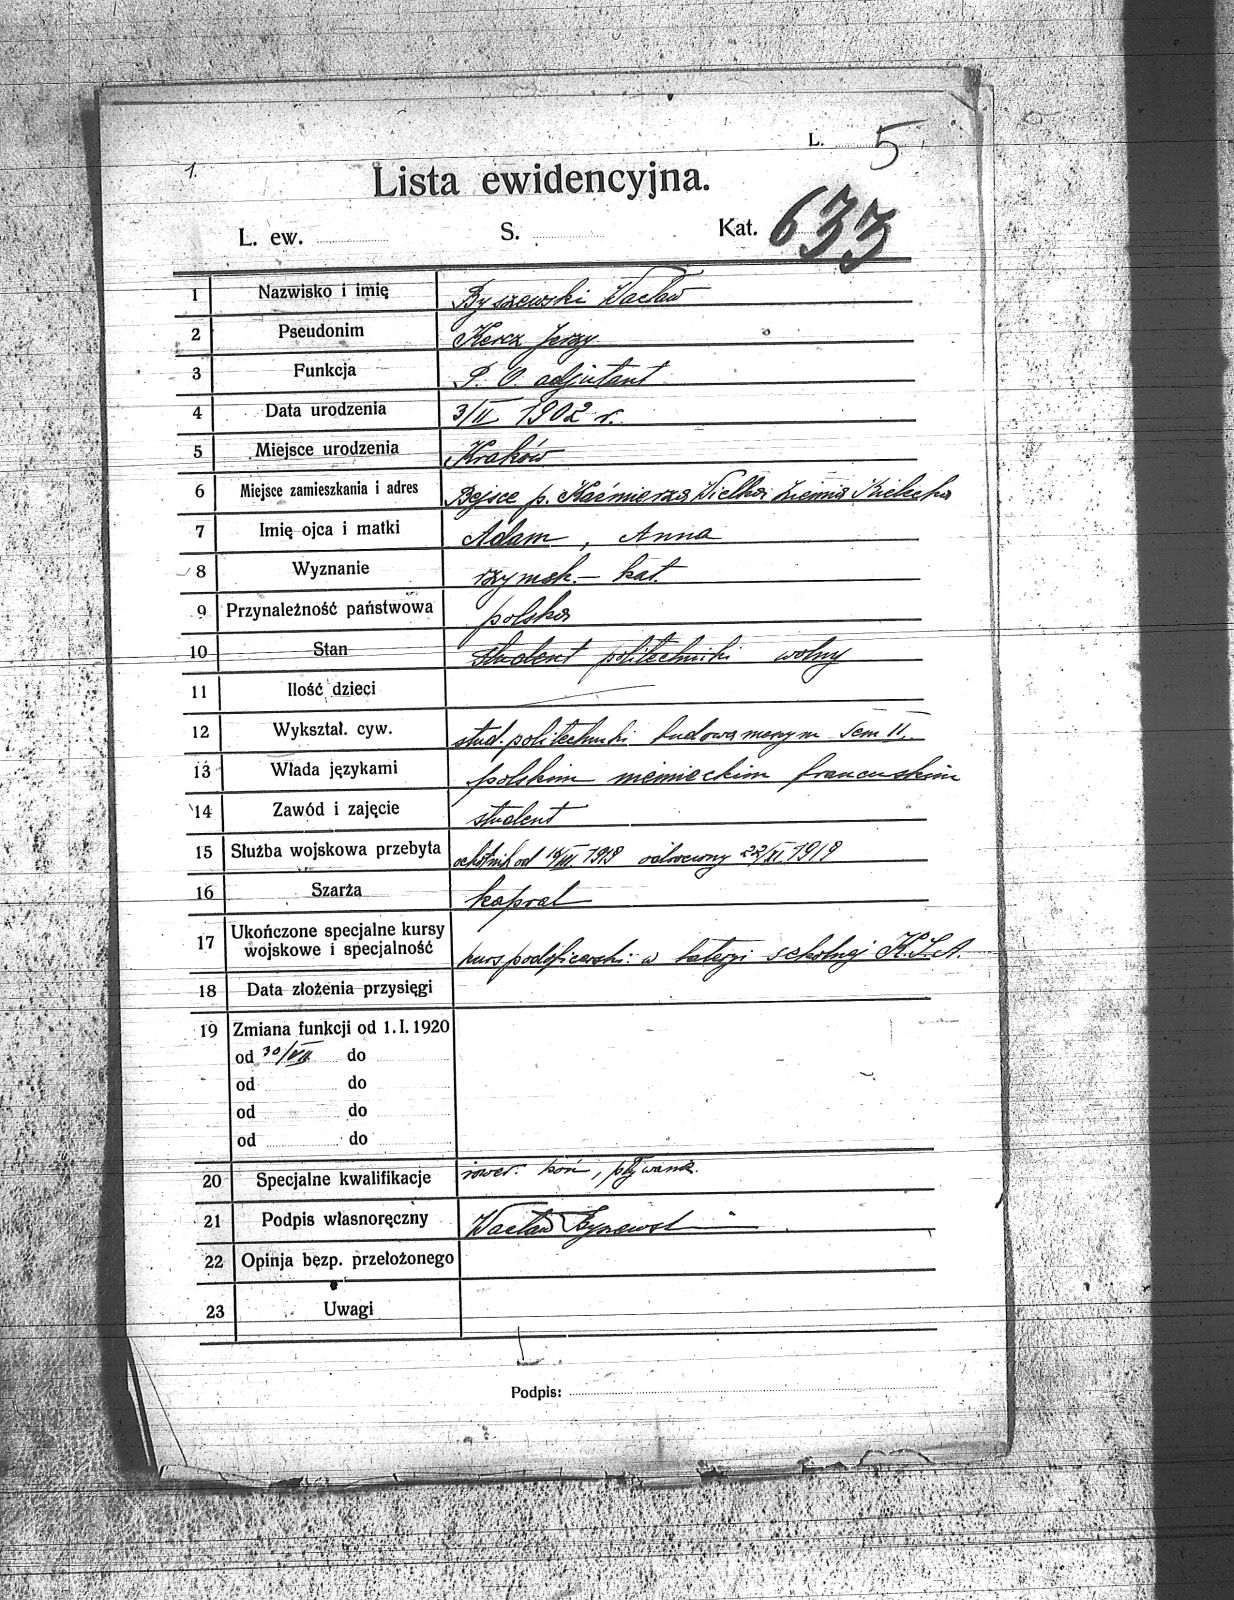 L. 5
1.
Lista ewidencyjna.
L. ew. S. Kat. 633
1 Nazwisko i imię Byszewski Wacław
2 Pseudonim Kercz Jerzy
3 Funkcja P. O. adjutant
4 Data urodzenia 3/II 1902 r.
5 Miejsce urodzenia Kraków
6 Miejsce zamieszkania i adres Bejsce p. Kaźmierza Wielka ziemia Kielecka
7 Imię ojca i matki Adam, Anna
8 Wyznanie rzymsk.-kat.
9 Przynależność państwowa polska
10 Stan student politechniki wolny
11 Ilość dzieci
12 Wykształ. cyw. stud. politechniki budowa maszyn sem II.
13 Włada językami polskim niemieckim francuskim
14 Zawód i zajęcie student
15 Służba wojskowa przebyta ochotnik od 1919 22/XI 1919
16 Szarża kapral
17 Ukończone specjalne kursy
wojskowe i specjalność kurs podoficerski: w baterji szkolnej
18 Data złożenia przysięgi
19 Zmiana funkcji od 1. I. 1920
od 30/VII do
od do
od do
od do
20 Specjalne kwalifikacje rower. koń, pływanie.
21 Podpis własnoręczny Wacław Byszewski
22 Opinja bezp. przełożonego
23 Uwagi
Podpis: